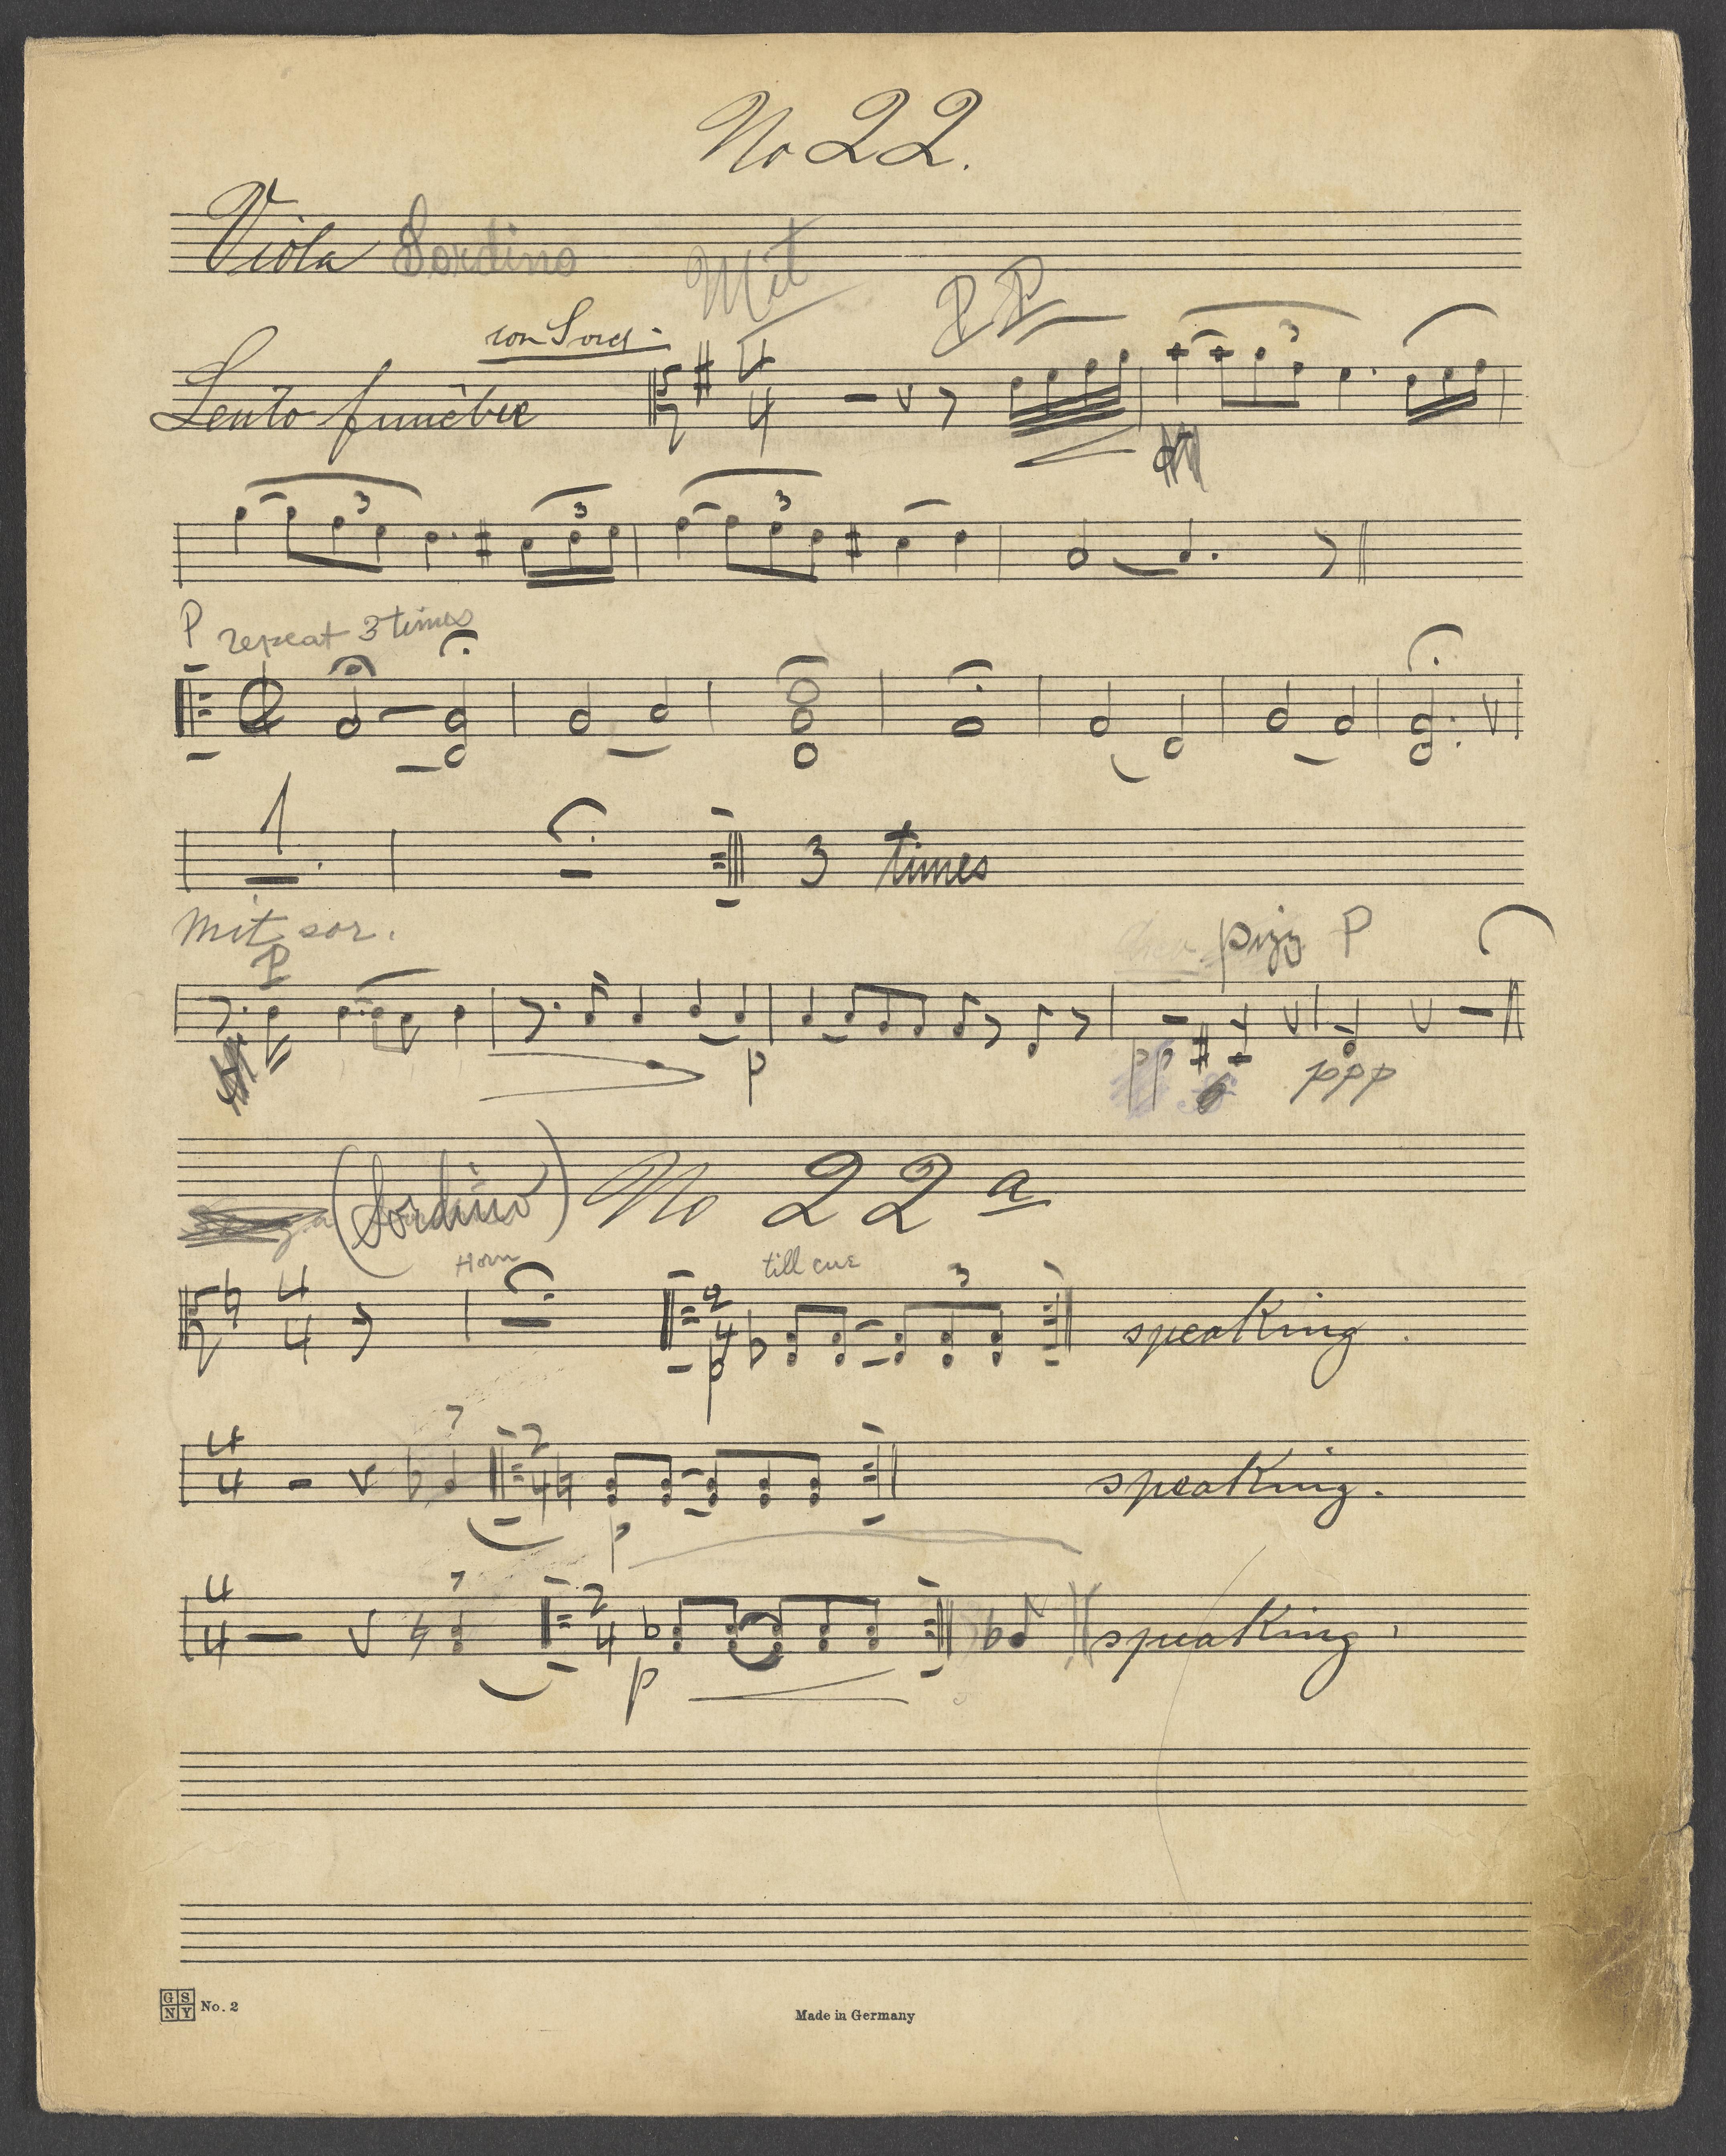 No 22.
Viola Sordino Mit
con Sord. PP
Lento funèbre 4 4 3
3 3 3
P repeat 3 times
1 3 times
Mit sor. pizz P
P
p pp ppp
(Sordino) No 22 a
Horn till cue
4 4 2 4 3 speaking.
p
4 4 2 4 speaking.
p
4 4 2 4 speaking.
p
GS NY No. 2 Made in Germany